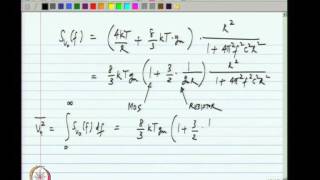 S_{v_o}(f) = (4kT/R + 8/3 kT·g_m) · R² / (1 + 4π²f²C²R²)
= 8/3 kT g_m (1 + 3/2 · 1/(g_m R)) · R² / (1 + 4π²f²C²R²)
MOS RESISTOR
\overline{v_o²} = ∫_0^∞ S_{v_o}(f) df = 8/3 kT g_m (1 + 3/2 · 1